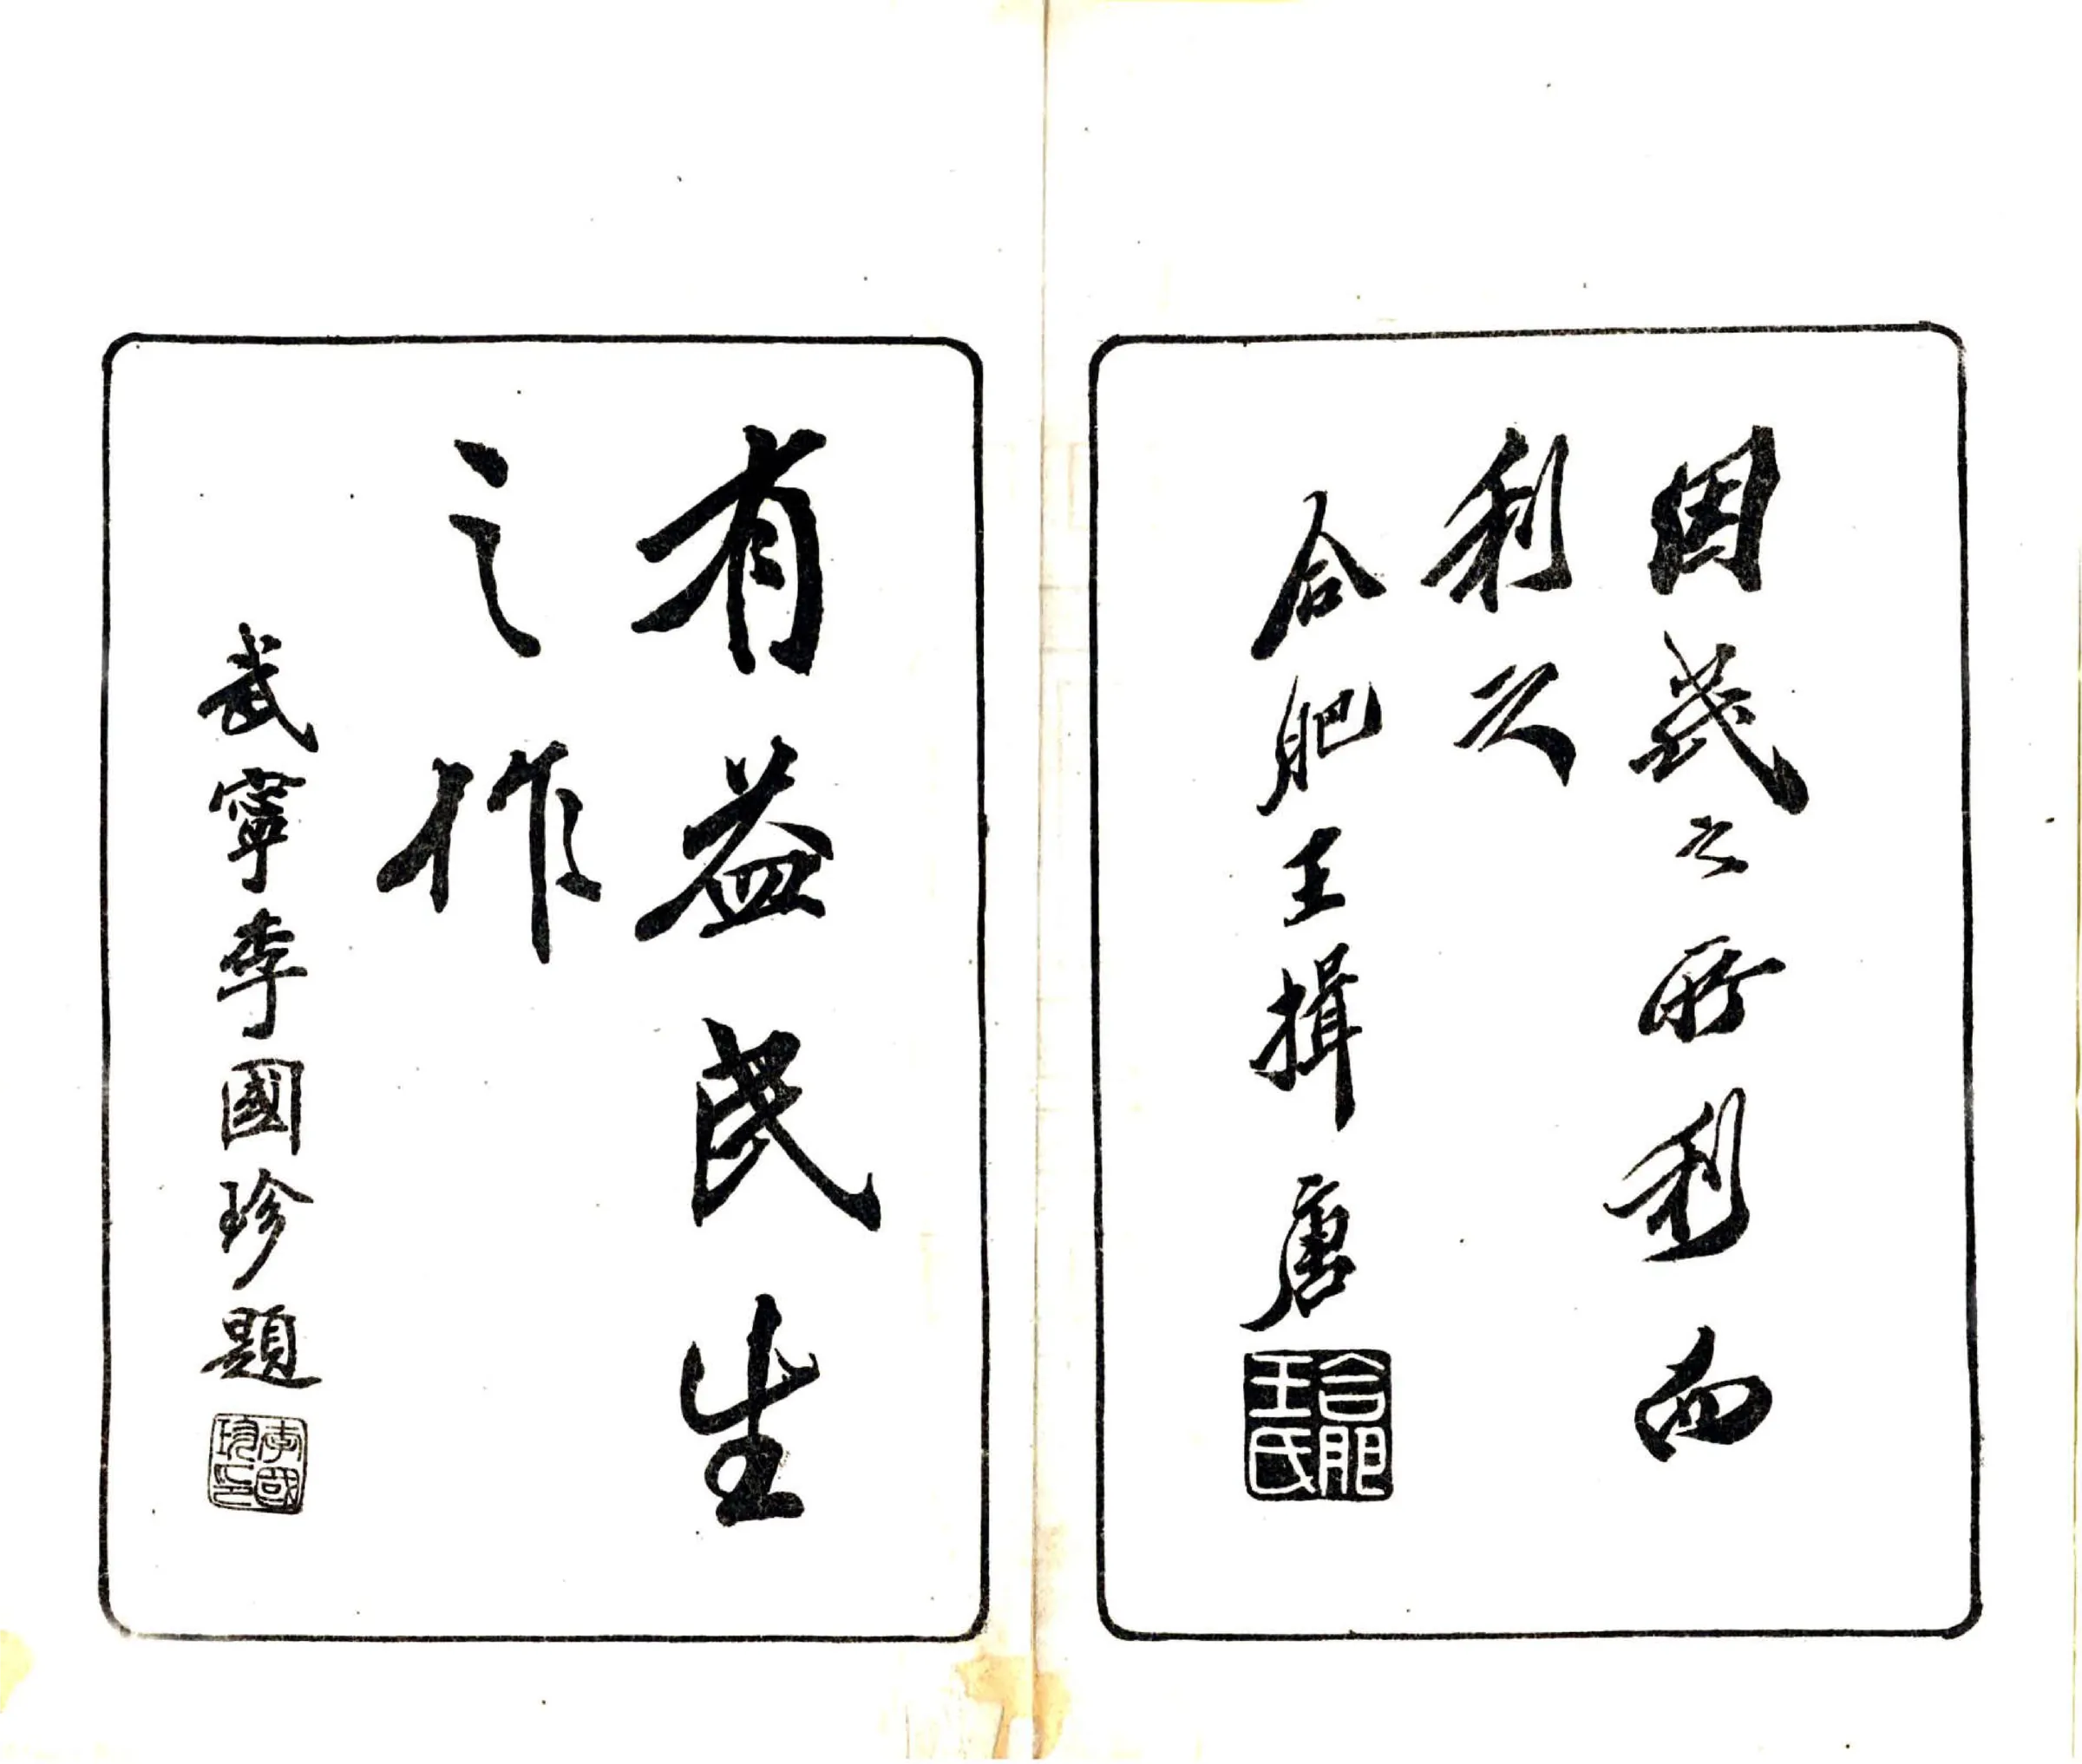 因民之所利而
利之
合肥王揖唐
合肥
王氏
有益民生
之作
武寧李國珍題
李國
珍印